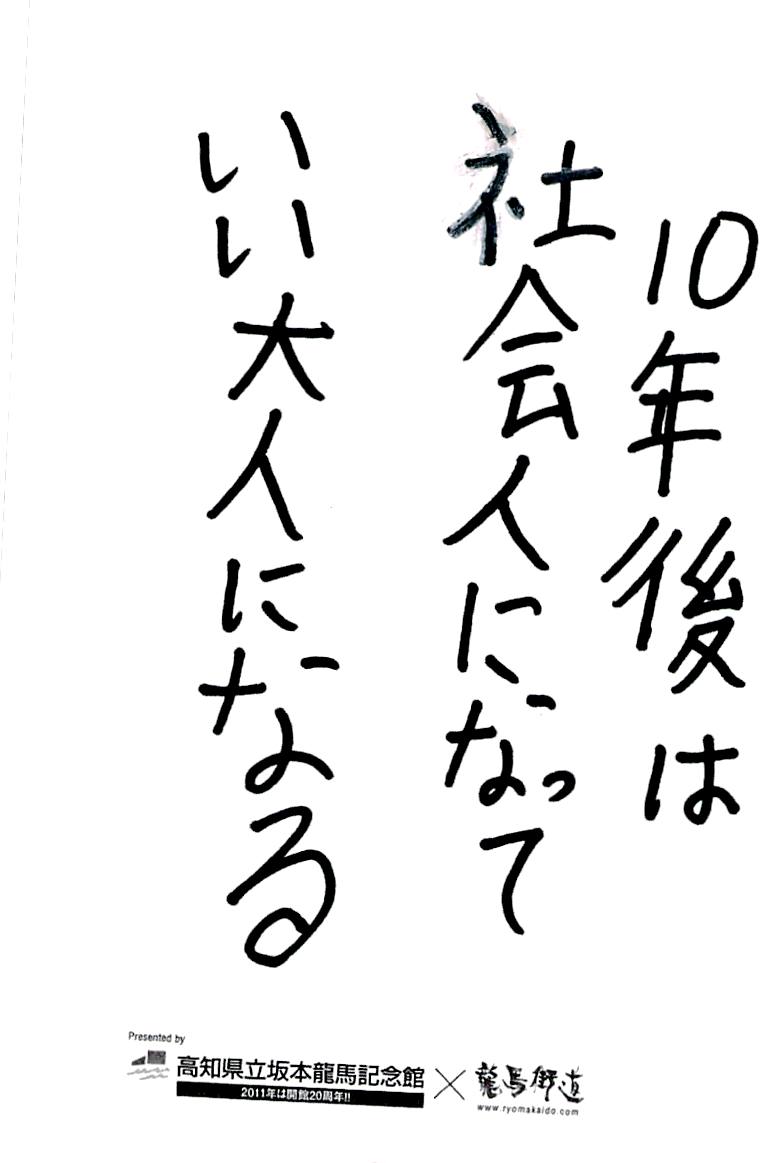 10年後は
社会人になって
いい大人になる
Presented by
高知県立坂本龍馬記念館
2011年は開館20周年!!
×
龍馬街道
www.ryomakaido.com